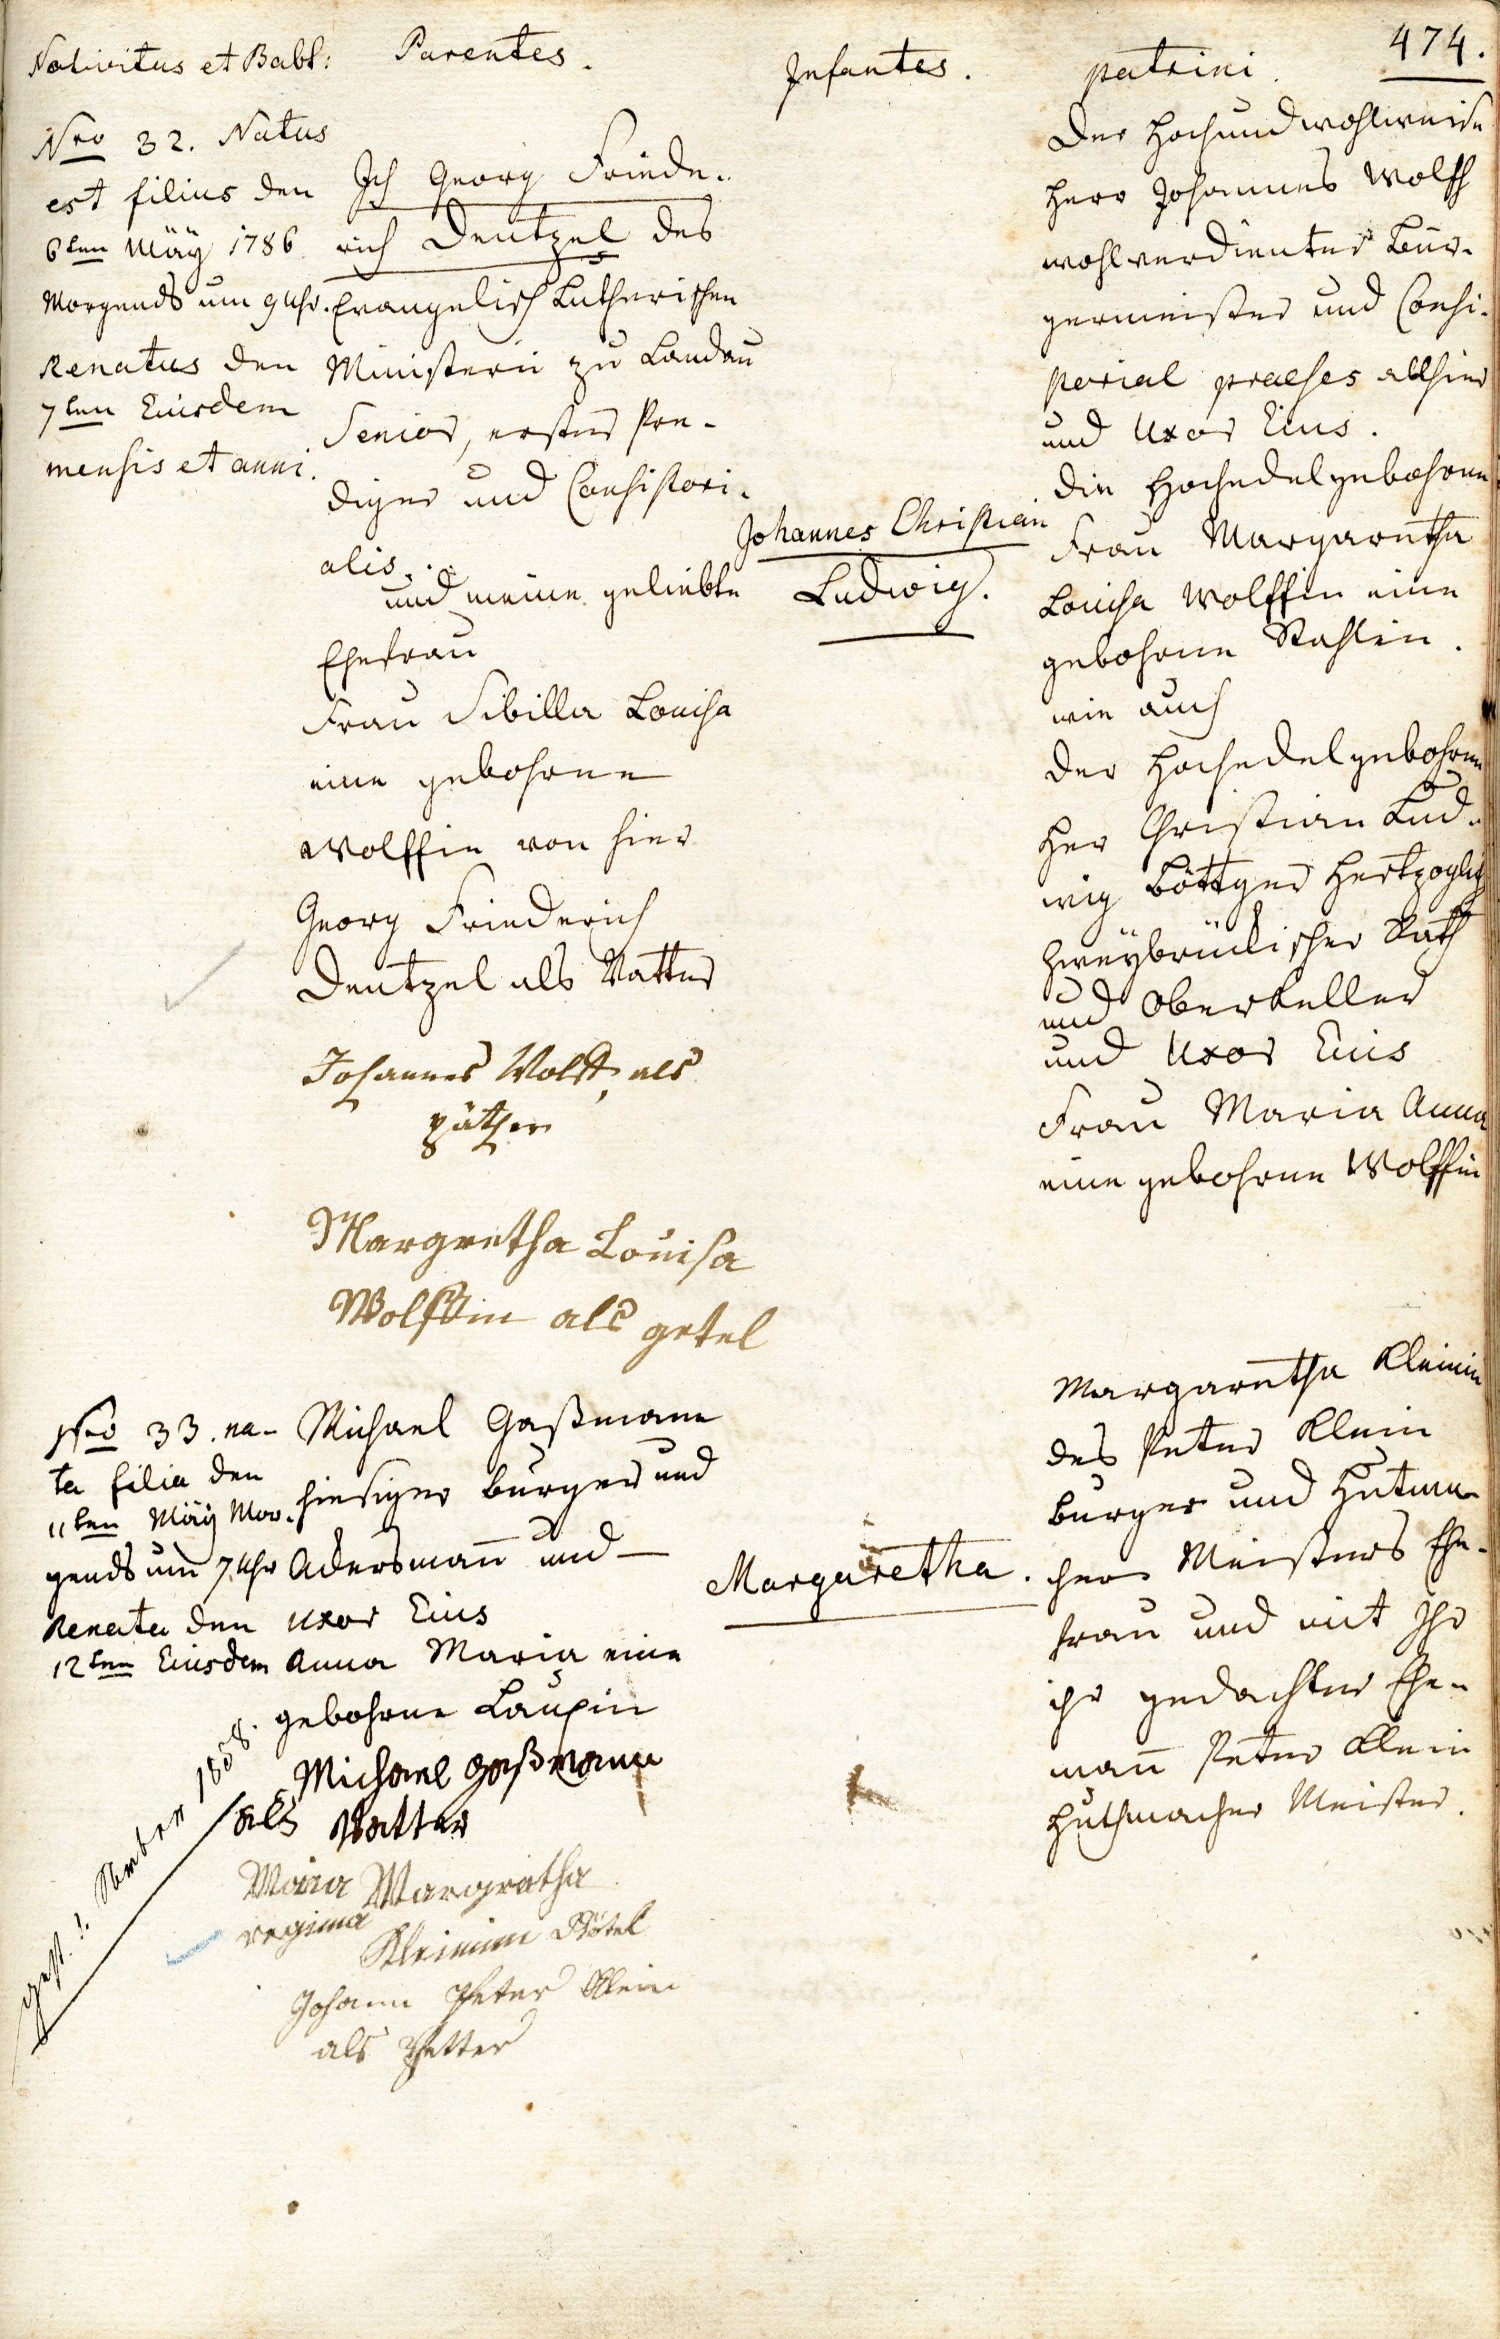 474.
Nativitus et Babt:
Parentes.
Infantes.
patrini.
Nro 32. Natus
est filius den
6ten Mäÿ 1786
Morgends um 9 Uhr.
Renatus den
7ten Eiusdem
mensis et anni.
Ich Georg Friede-
rich Dentzel des
Evangelisch Lutherischen
Ministerii zu Landau
Senior, erster Pre-
diger und Consistori-
alis.
und meine geliebte
Ehefrau
Frau Sibilla Louisa
eine gebohrene
Wolffin von hier
Georg Friederich
Dentzel als Vatter
Johannes Wolff, als
päther
Margretha Louisa
Wolffin als getel
Johannes Christian
Ludwig.
Der Hochundwohlweise
Herr Johannes Wolff
wohlverdienter Bur-
germeister und Consi-
storial praeses allhier
und Uxor Eius.
die Hochedelgebohrne
Frau Margaretha
Louisa Wolffin eine
gebohrne Stahlin.
wie auch
der Hochedelgebohrne
Her Christian Lud-
wig Böttger Hertzoglich
Zweÿbrückischer Rath
und Oberkeller
und Uxor Eius
Frau Maria Anna
eine gebohrne Wolffin
Nro 33. na-
ta filia den
11ten Mäÿ Mor-
gends um 7 Uhr
Renata den
12ten Eiusdem
Michael Gaßmann
hiesiger burger und
Ackersmañ und
uxor Eius
Anna Maria eine
gebohrne Lauxin
Michael gaßmann
als Vatter
Maria Margretha
regina
Kleinin Götel
Johann Peter Klein
als Petter
gest. 1858.
Margaretha.
Margaretha Kleinin
des Peter Klein
burger und Hutma-
cher Meisters Ehe-
frau und mit Ihr
ihr gedachter Ehe-
mañ Peter Klein
Huthmacher Meister.